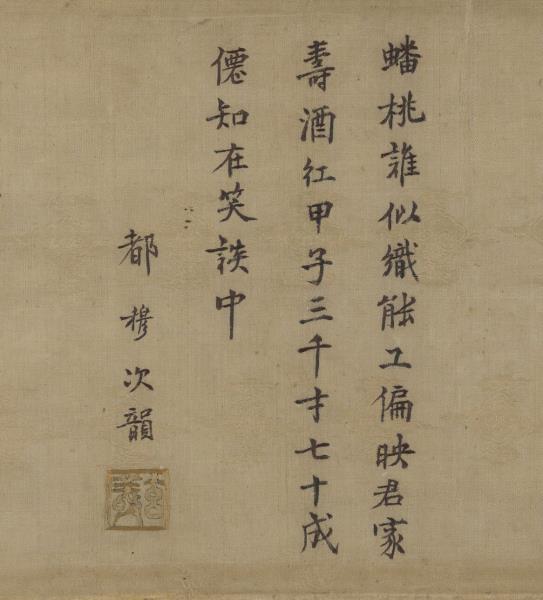 蟠桃誰似織能工偏映君家
壽酒紅甲子三千才七十成
僊知在笑談中
都穆次韻